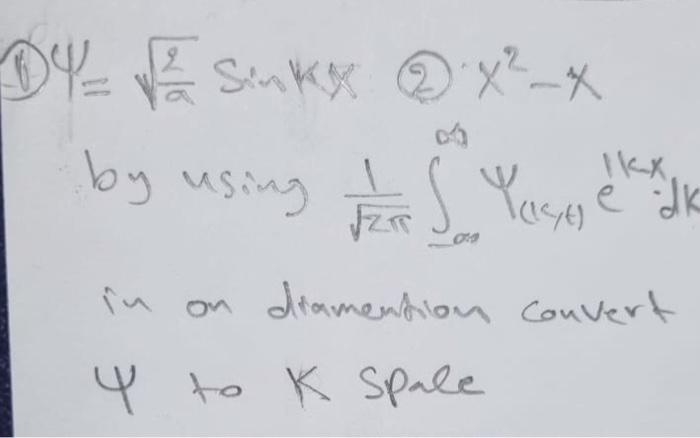 ① Ψ = √(2/a) Sin kx ② x² - x
by using 1/√2π ∫_{-∞}^{∞} Ψ(k,t) e^{ikx} dk
in on diamention convert
Ψ to K Spale